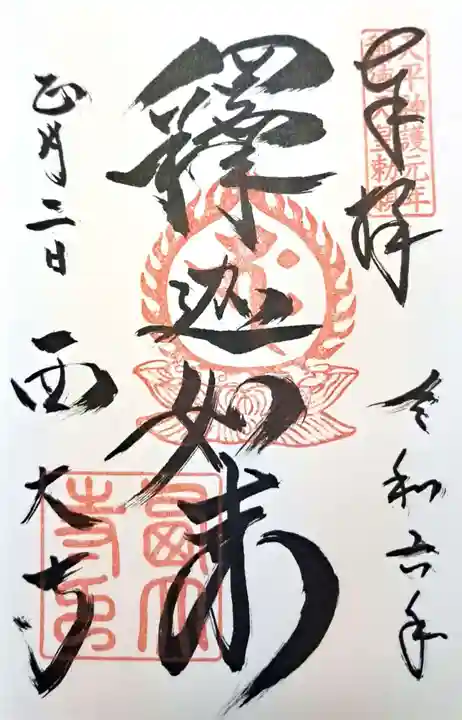 奉拝
天平神護元年
称徳天皇勅願
令和六年
釋迦如来
正月三日
西大寺